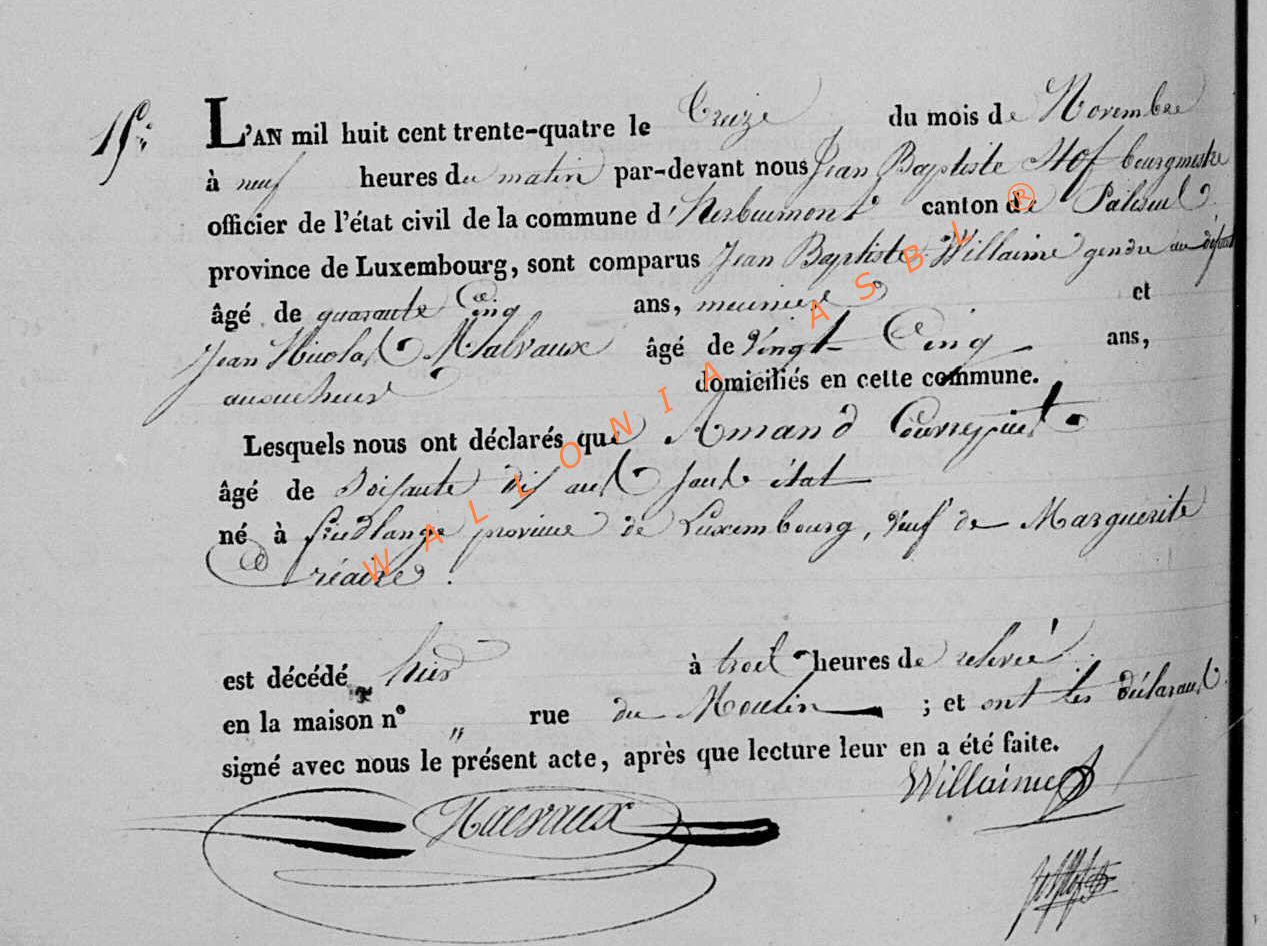 15e
L'AN mil huit cent trente-quatre le Treize du mois de Novembre
à neuf heures du matin par-devant nous Jean Baptiste Hof bourgmestre
officier de l'état civil de la commune d'Herbeumont canton de Paliseul
province de Luxembourg, sont comparus Jean Baptiste Willaime gendre au défunt
âgé de quarante Cinq ans, meunier et
Jean Nicolas Malvaux âgé de Vingt Cinq ans,
domiciliés en cette commune.
Lesquels nous ont déclarés que Amand
âgé de Soisante dix ans sans état
né à province de Luxembourg, veuf de Marguerite
est décédé hier à trois heures de relevée
en la maison n° „ rue du Moulin ; et ont les déclarants
signé avec nous le présent acte, après que lecture leur en a été faite.
Willaime
Malvaux
WALLONIA ASBL ®